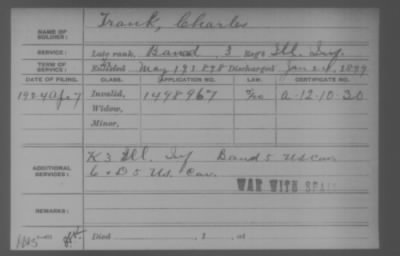 NAME OF SOLDIER: Frank, Charles
SERVICE: Late rank, Band, 3 Reg't Ill. Inf.
TERM OF SERVICE: Enlisted May 19 1898 Discharged Jan 24, 1899
DATE OF FILING. CLASS. APPLICATION NO. LAW. CERTIFICATE NO.
1924 Apr 7 Invalid, 1498967 A-12-10-30
Widow,
Minor,
ADDITIONAL SERVICES: K 3 Ill. Inf Band 5 US Cav
C & D 5 U.S. Cav.
WAR WITH SPAIN
REMARKS:
Died , 1 , at